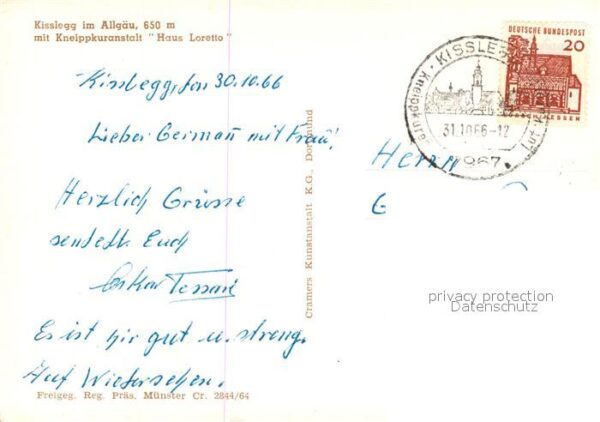 Kisslegg im Allgäu, 650 m
mit Kneippkuranstalt "Haus Loretto"
Kisslegg, den 30.10.66
Lieber German mit Frau!
Herzlich Grüsse
sendet Euch
Oskar Tessari
Es ist hir gut u. streng.
Auf Wiedersehen.
Freigeg. Reg. Präs. Münster Cr. 2844/64
Cramers Kunstanstalt K.G., Dortmund
DEUTSCHE BUNDESPOST
20
KISSLEGG
Kneippkurort
31.10.66-12
7967
Herrn
G
privacy protection
Datenschutz